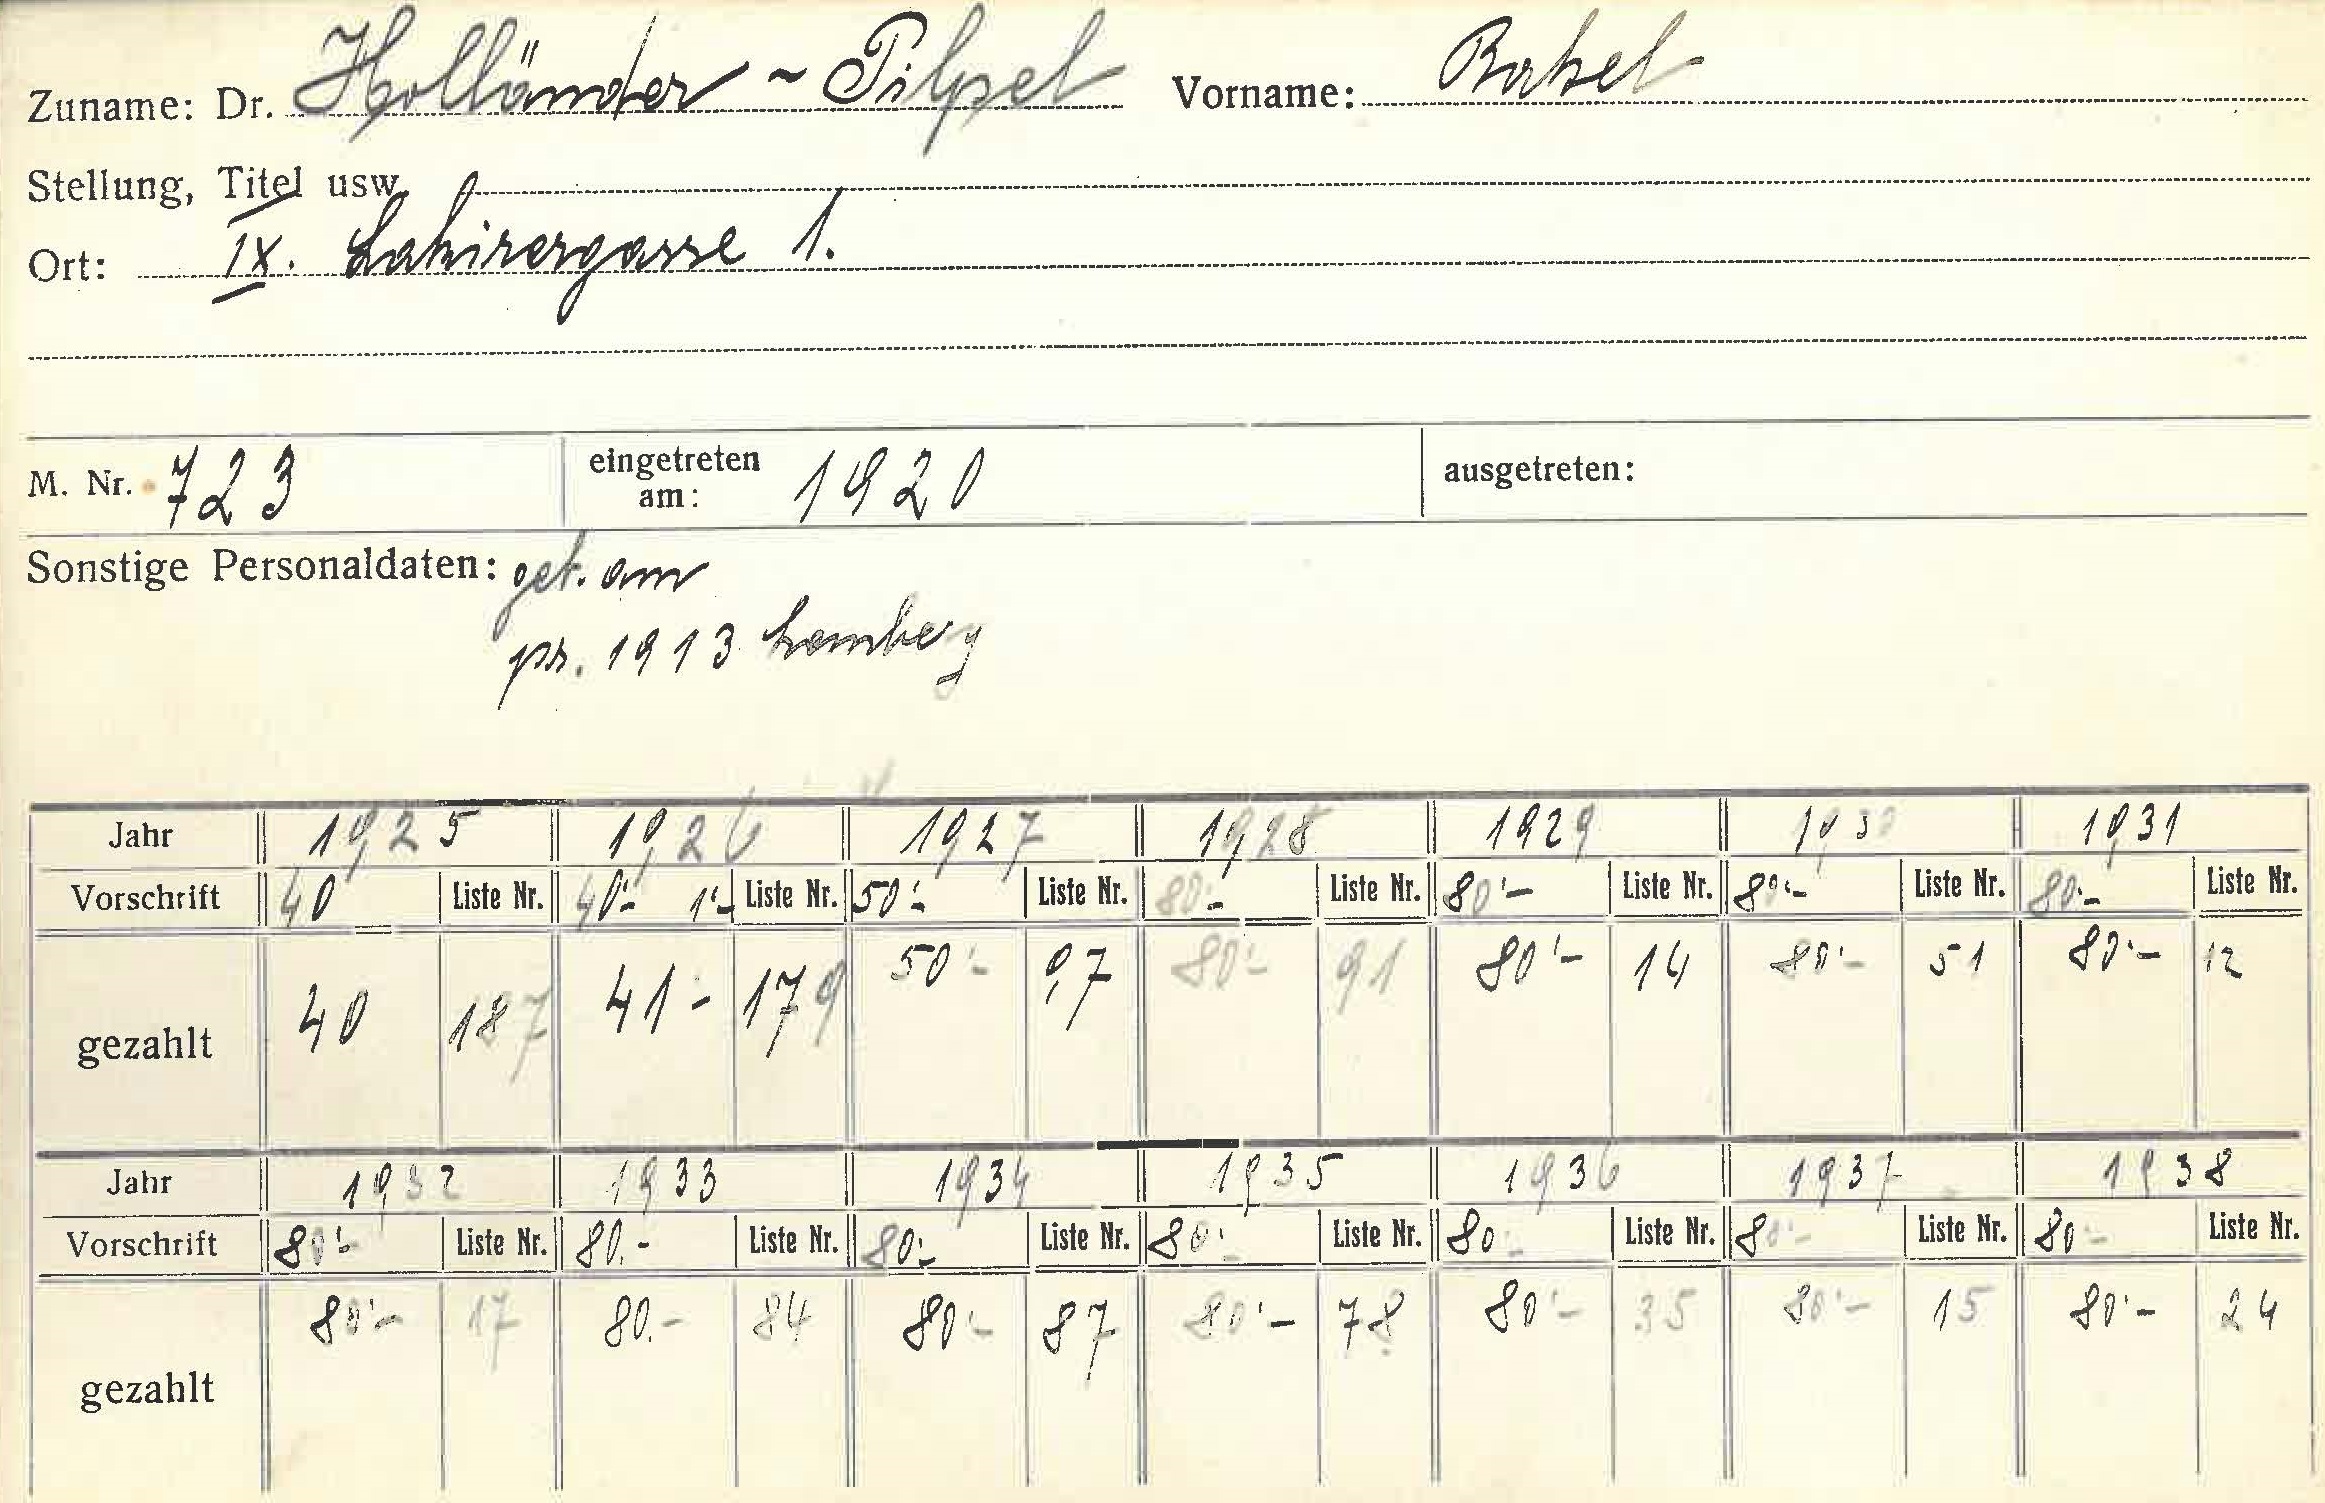 Zuname: Dr. Holländer - Pilpel Vorname: Rahel
Stellung, Titel usw.
Ort: IX. Lakirergasse 1.
M. Nr. 723 eingetreten am: 1920 ausgetreten:
Sonstige Personaldaten: geb. am
pr. 1913 Lemberg
Jahr 1925 1926 1927 1928 1929 1930 1931
Vorschrift 40 Liste Nr. 40.- 1.- Liste Nr. 50.- Liste Nr. 80.- Liste Nr. 80.- Liste Nr. 80.- Liste Nr. 80.- Liste Nr.
gezahlt 40 187 41- 179 50.- 97 80.- 91 80.- 14 80.- 51 80.- 12
Jahr 1932 1933 1934 1935 1936 1937 1938
Vorschrift 80.- Liste Nr. 80.- Liste Nr. 80.- Liste Nr. 80.- Liste Nr. 80.- Liste Nr. 80.- Liste Nr. 80.- Liste Nr.
gezahlt 80.- 17 80.- 84 80.- 87 80.- 78 80.- 35 80.- 15 80.- 24